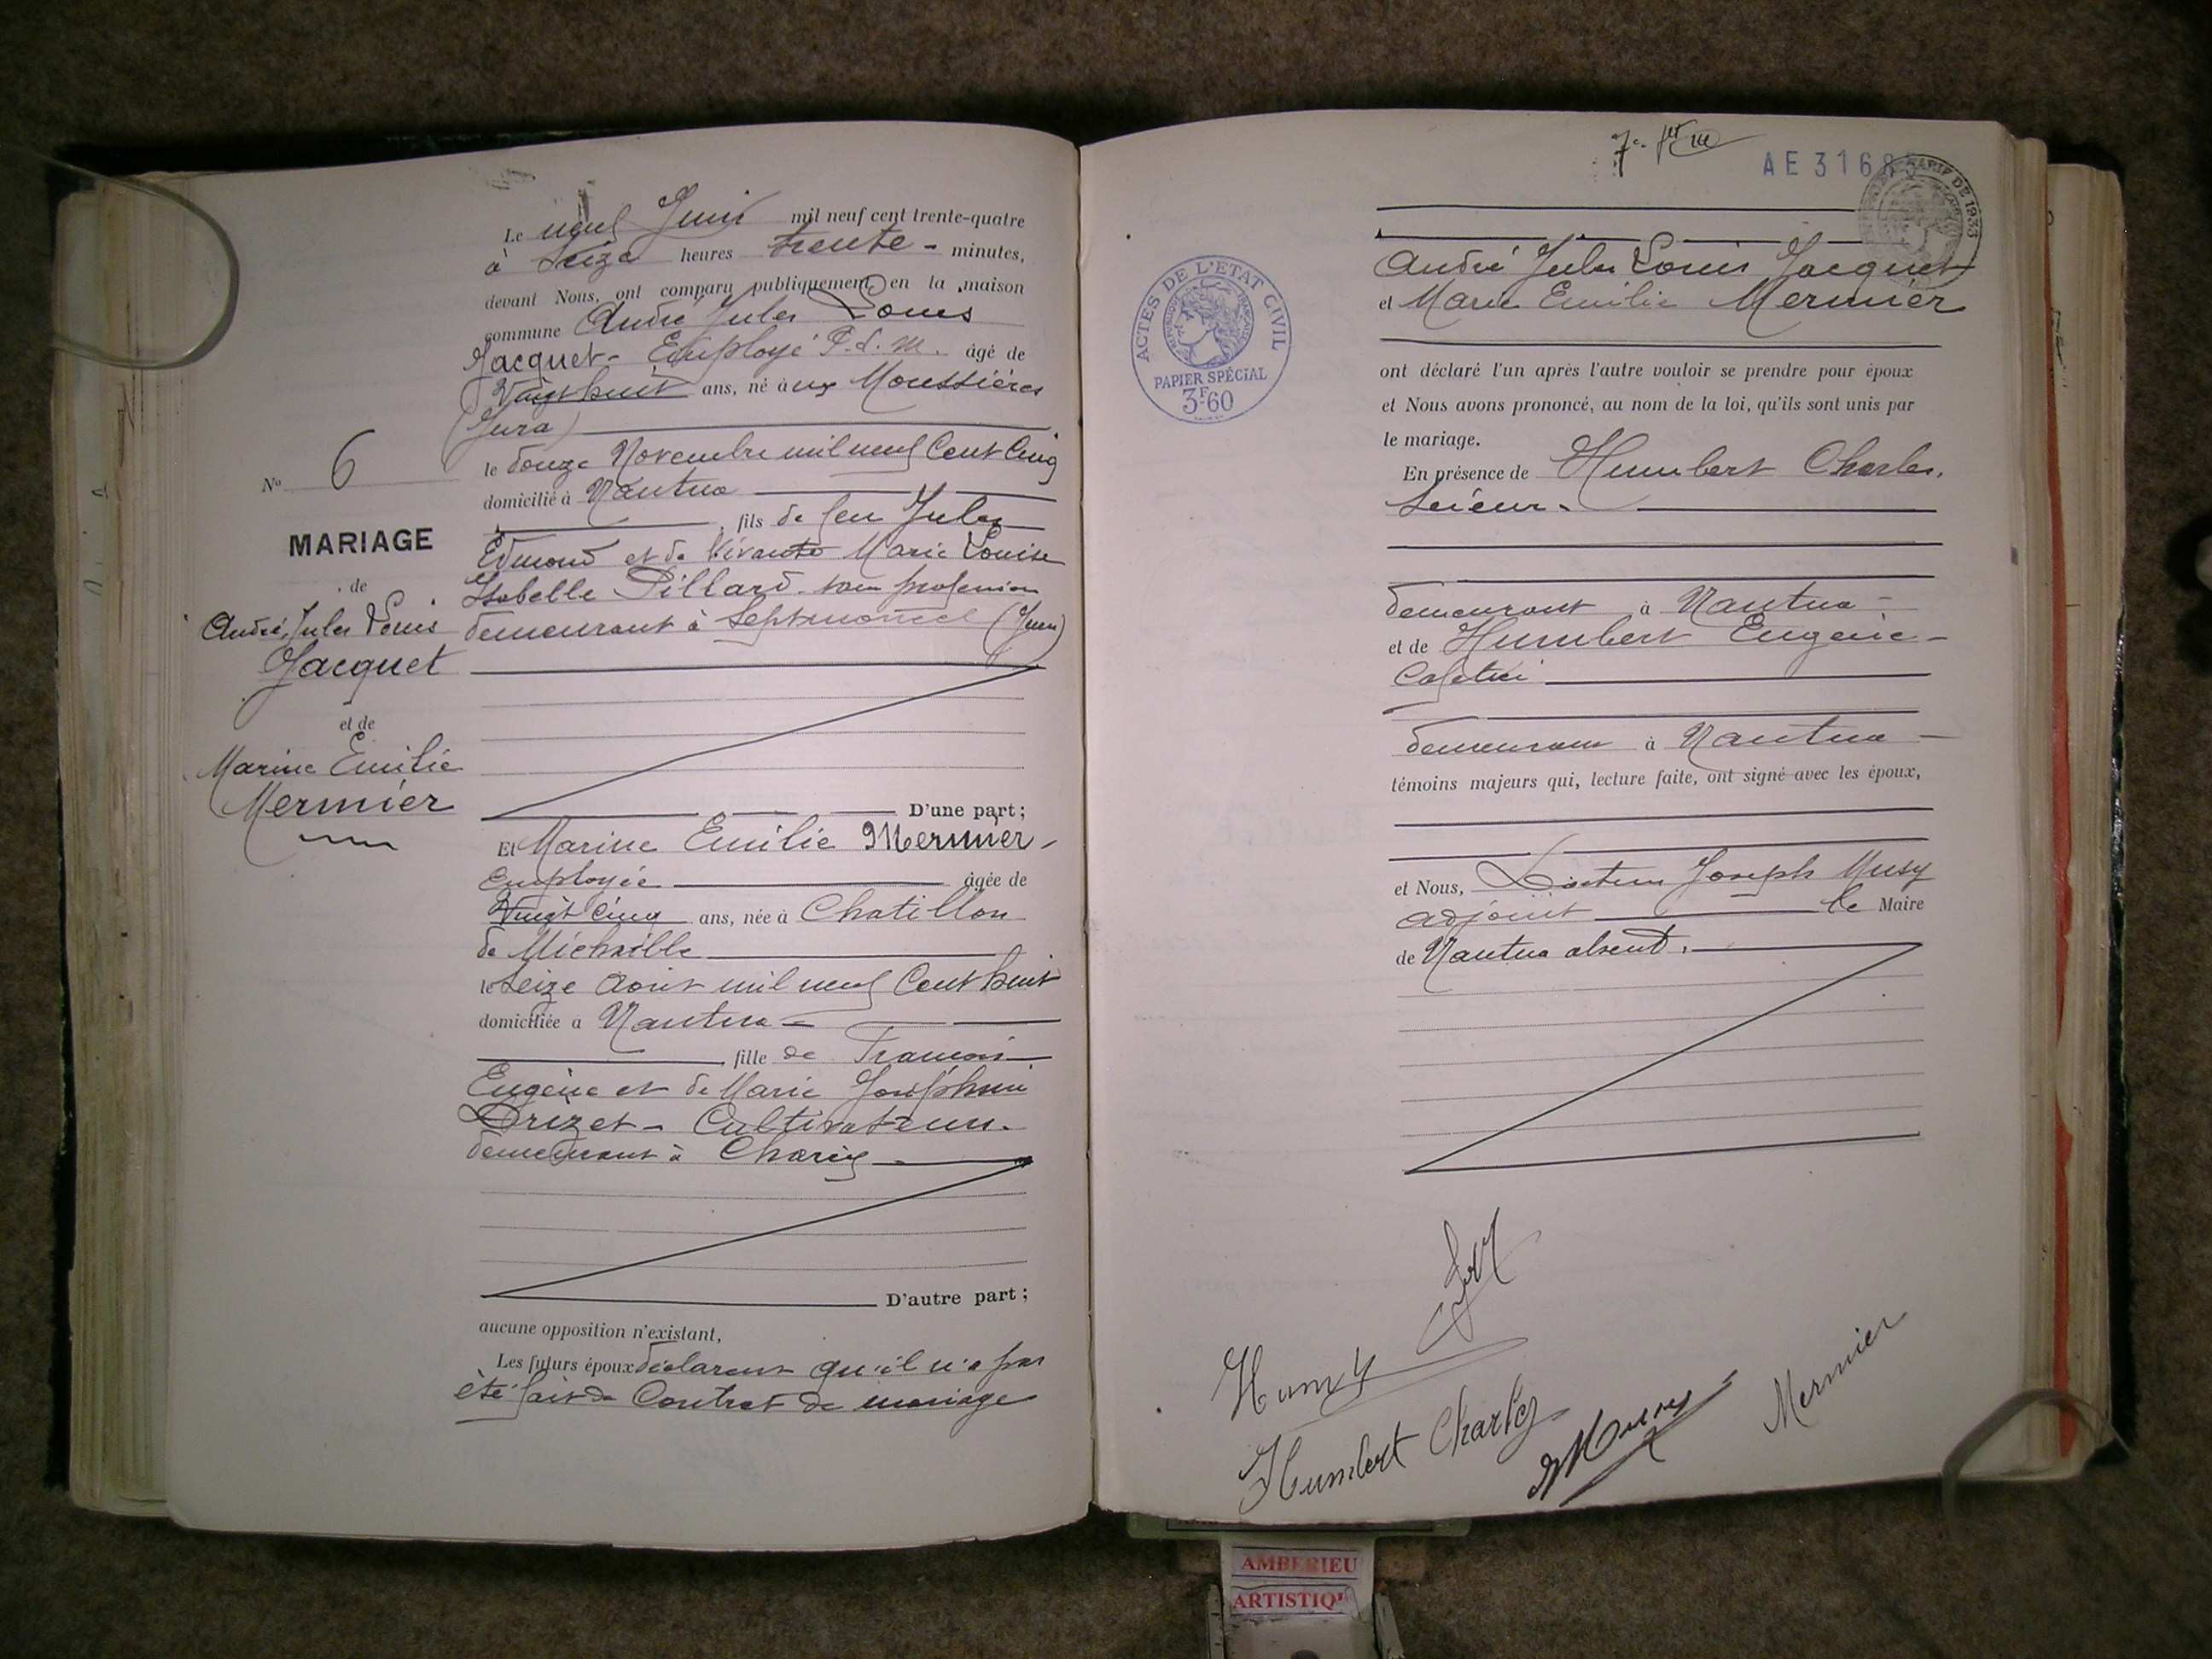 Le neuf Juin mil neuf cent trente-quatre
à Seize heures trente - minutes,
devant Nous, ont comparu publiquement en la maison
commune André Jules Louis
Jacquet - Employé âgé de
Vingt huit ans, né à ux Moussières
(Jura)
le douze Novembre mil neuf Cent Cinq
domicilié à Nantua
, fils de feu Jules
Edmond et de Vivante Marie Louise
Isabelle Pillard sans profession
demeurant à Septmoncel (Jura)
D'une part ;
Et Marine Emilie Mermier -
Employée âgée de
Vingt Cinq ans, née à Chatillon
de Michaille
le Seize Aout mil neuf Cent huit
domiciliée à Nantua -
fille de Francois
Eugène et de Marie Joséphine
Drizet - Cultivateurs.
demeurant à Charix
D'autre part ;
aucune opposition n'existant,
Les futurs époux déclarent qu'il n'a pas
été fait de Contrat de mariage
No 6
MARIAGE
de
André Jules Louis
Jacquet
et de
Marine Emilie
Mermier
AE 3168
ACTES DE L'ETAT CIVIL
PAPIER SPÉCIAL
3F60
TARIF DE 1933
André Jules Louis Jacquet
et Marie Emilie Mermier
ont déclaré l'un après l'autre vouloir se prendre pour époux
et Nous avons prononcé, au nom de la loi, qu'ils sont unis par
le mariage.
En présence de Humbert Charles,
Scieur -
demeurant à Nantua -
et de Humbert Eugène -
demeurant à Nantua -
témoins majeurs qui, lecture faite, ont signé avec les époux,
et Nous, Docteur Joseph Musy
adjoint le Maire
de Nantua absent.
Humbert Charles
Musy
Mermier
AMBERIEU
ARTISTIQ